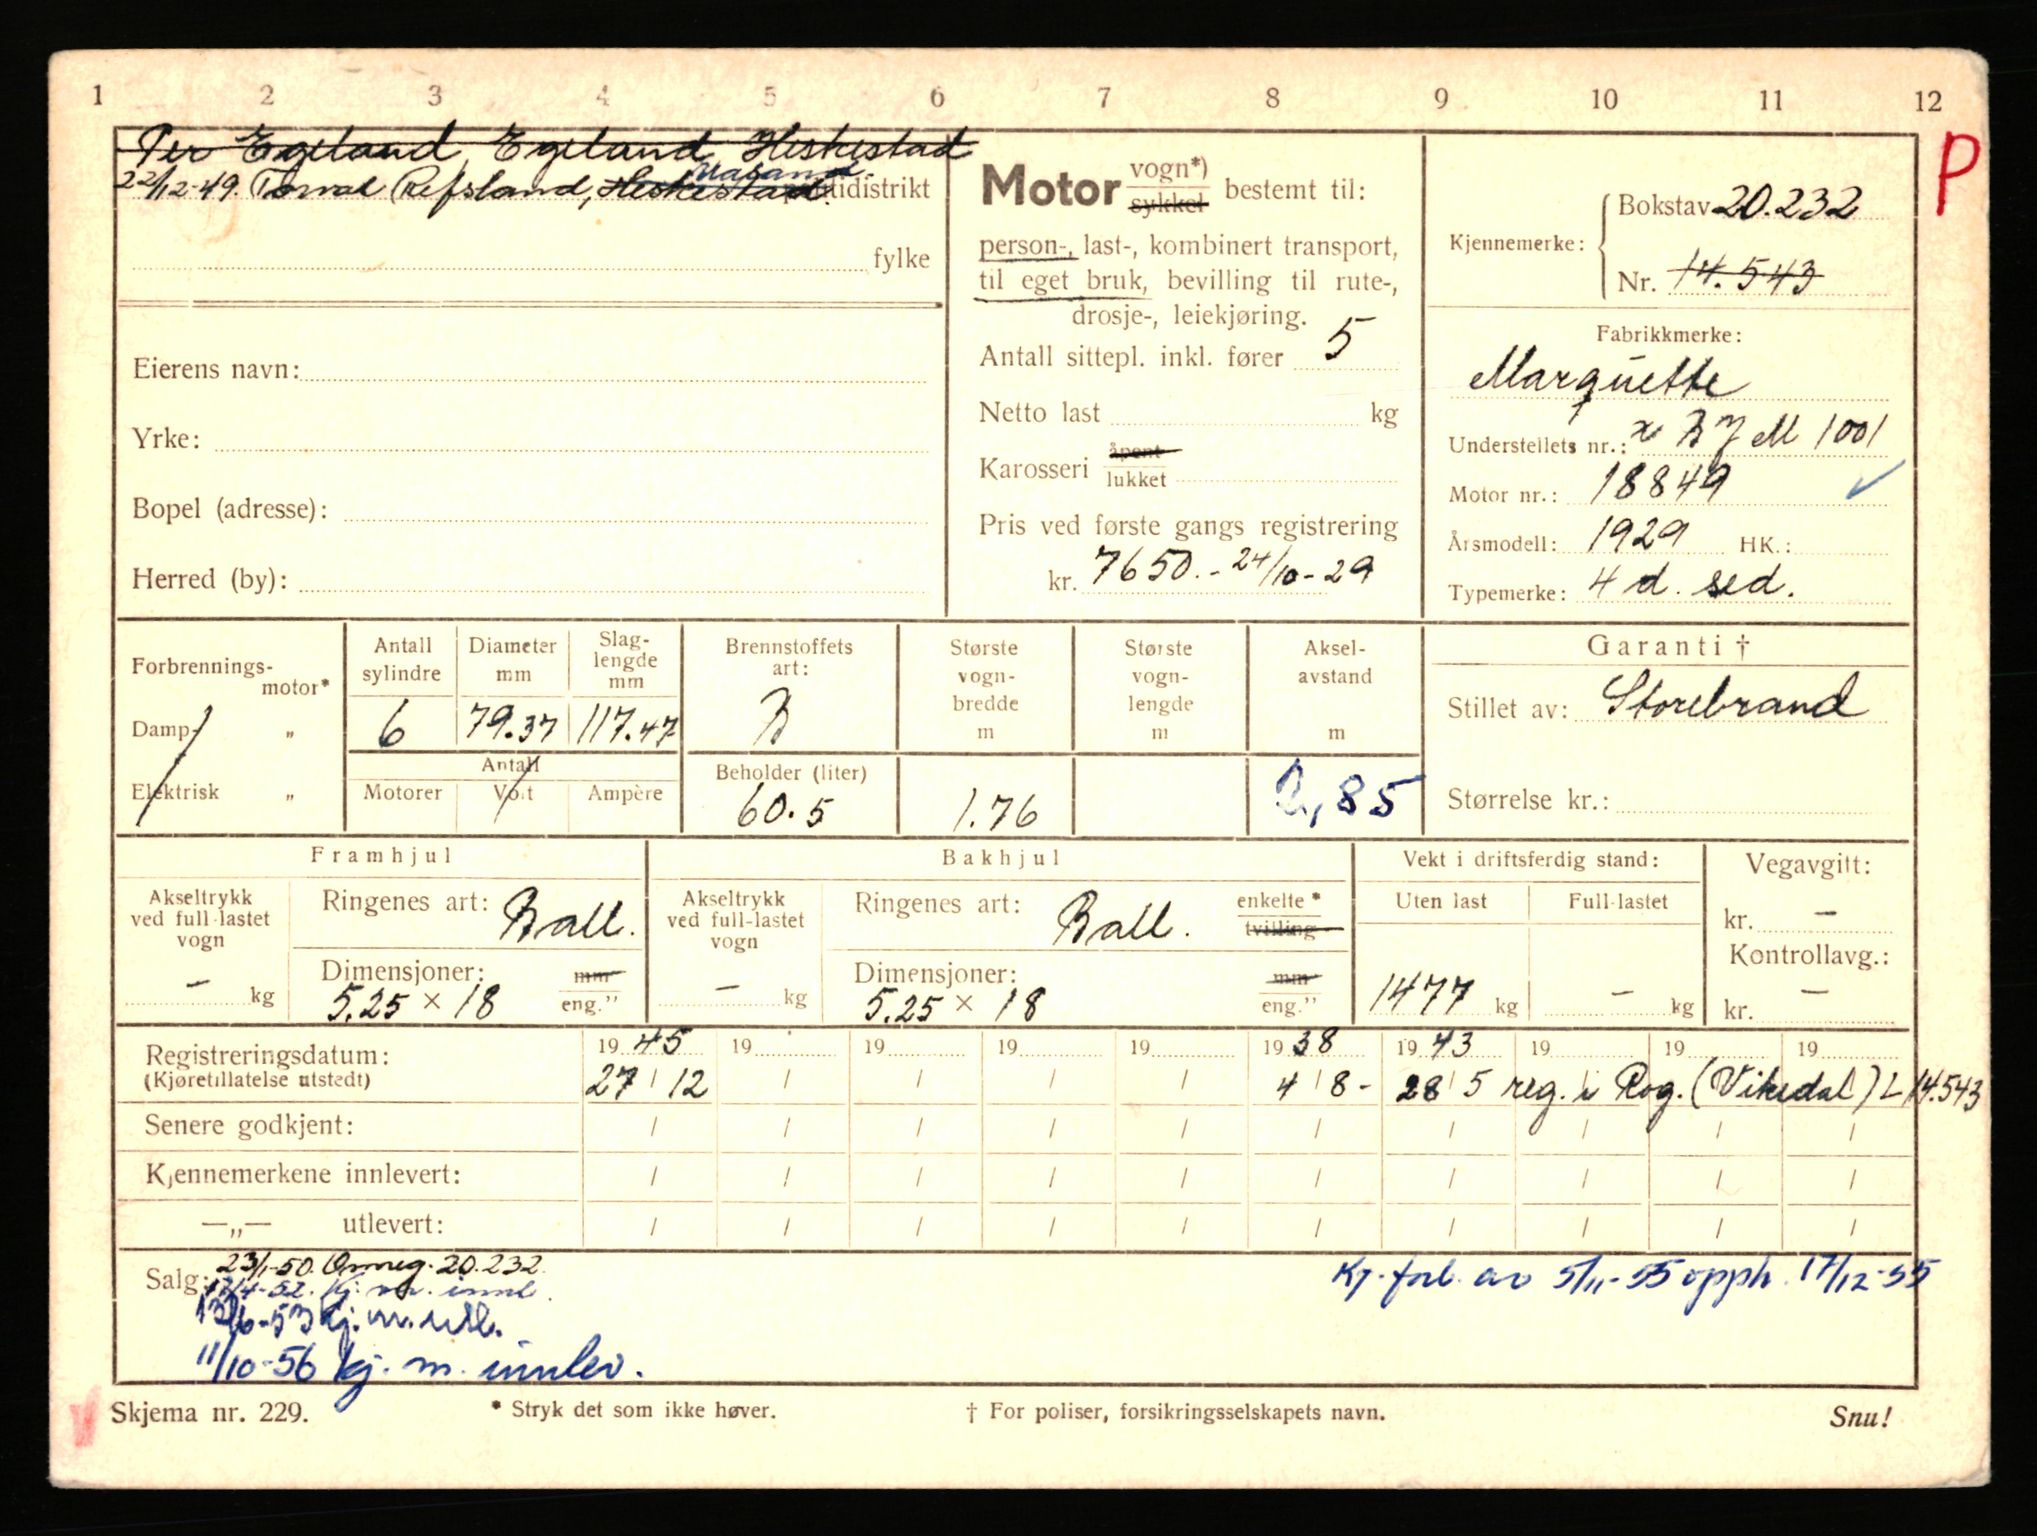 1 2 3 4 5 6 7 8 9 10 11 12
P
Per Egeland, Egeland, Heskestad
22/12-49. Torval Refsland, Heskestad politidistrikt
fylke
Eierens navn:
Yrke:
Bopel (adresse):
Herred (by):
Motor vogn*) sykkel bestemt til:
person-, last-, kombinert transport,
til eget bruk, bevilling til rute-,
drosje-, leiekjøring.
Antall sittepl. inkl. fører 5
Netto last kg
Karosseri åpent lukket
Pris ved første gangs registrering
kr. 7650.- 24/10-29
Kjennemerke: Bokstav 20.232
Nr. 14.543
Fabrikkmerke:
Marquette
Understellets nr.: x B J M 1001
Motor nr.: 18849
Årsmodell: 1929 HK.:
Typemerke: 4 d. sed.
Forbrennings-motor*
Damp- "
Elektrisk "
Antall sylindre
6
Diameter mm
79.37
Slag-lengde mm
117.47
Antall
Motorer Volt Ampère
Brennstoffets art:
B
Beholder (liter)
60.5
Største vogn-bredde m
1.76
Største vogn-lengde m
Aksel-avstand m
2,85
Garanti †
Stillet av: Storebrand
Størrelse kr.:
Framhjul
Akseltrykk ved full-lastet vogn
- kg
Ringenes art: Ball.
Dimensjoner: mm
5.25 × 18 eng."
Bakhjul
Akseltrykk ved full-lastet vogn
- kg
Ringenes art: Ball. enkelte* tvilling
Dimensjoner: mm
5.25 × 18 eng."
Vekt i driftsferdig stand:
Uten last Full-lastet
1477 kg - kg
Vegavgitt:
kr. -
Kontrollavg.:
kr. -
Registreringsdatum: 19 45 19 19 19 19 19 38 19 43 19 19 19
(Kjøretillatelse utstedt) 27/12 / / / / 4/8- 28/5 reg. i Rog. (Vikedal) L 14.543
Senere godkjent: / / / / / / / / / /
Kjennemerkene innlevert: / / / / / / / / / /
—„— utlevert: / / / / / / / / / /
Salg: 23/1-50. Omreg. 20.232.
17/4-52. kj. m. innl.
13/6-53 kj. m. utl.
11/10-56 kj. m. innlev.
Kj. forb. av 5/11-55 opph. 17/12-55
Skjema nr. 229. * Stryk det som ikke høver. † For poliser, forsikringsselskapets navn. Snu!